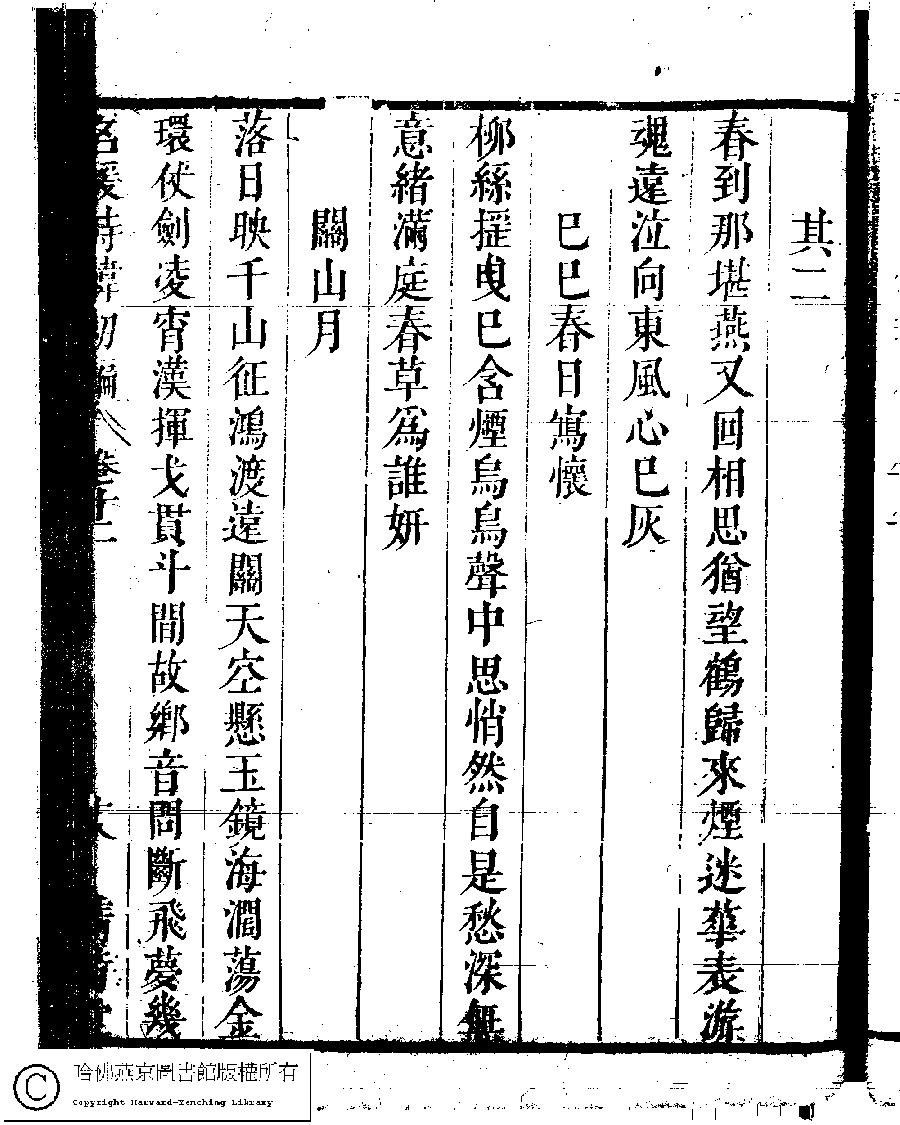 其二
春到那堪燕又回相思猶望鶴歸來煙迷華表游
魂遠泣向東風心已灰
己巳春日寫懷
柳絲搖曳已含煙烏鳥聲中思悄然自是愁深無
意緒滿庭春草為誰妍
關山月
落日映千山征鴻渡遠關天空懸玉鏡海濶蕩金
環仗劍凌宵漢揮戈貫斗間故鄉音問斷飛夢幾
名媛詩緯初編 卷十二
清音堂
哈佛燕京圖書館版權所有
Copyright Harvard-Yenching Library